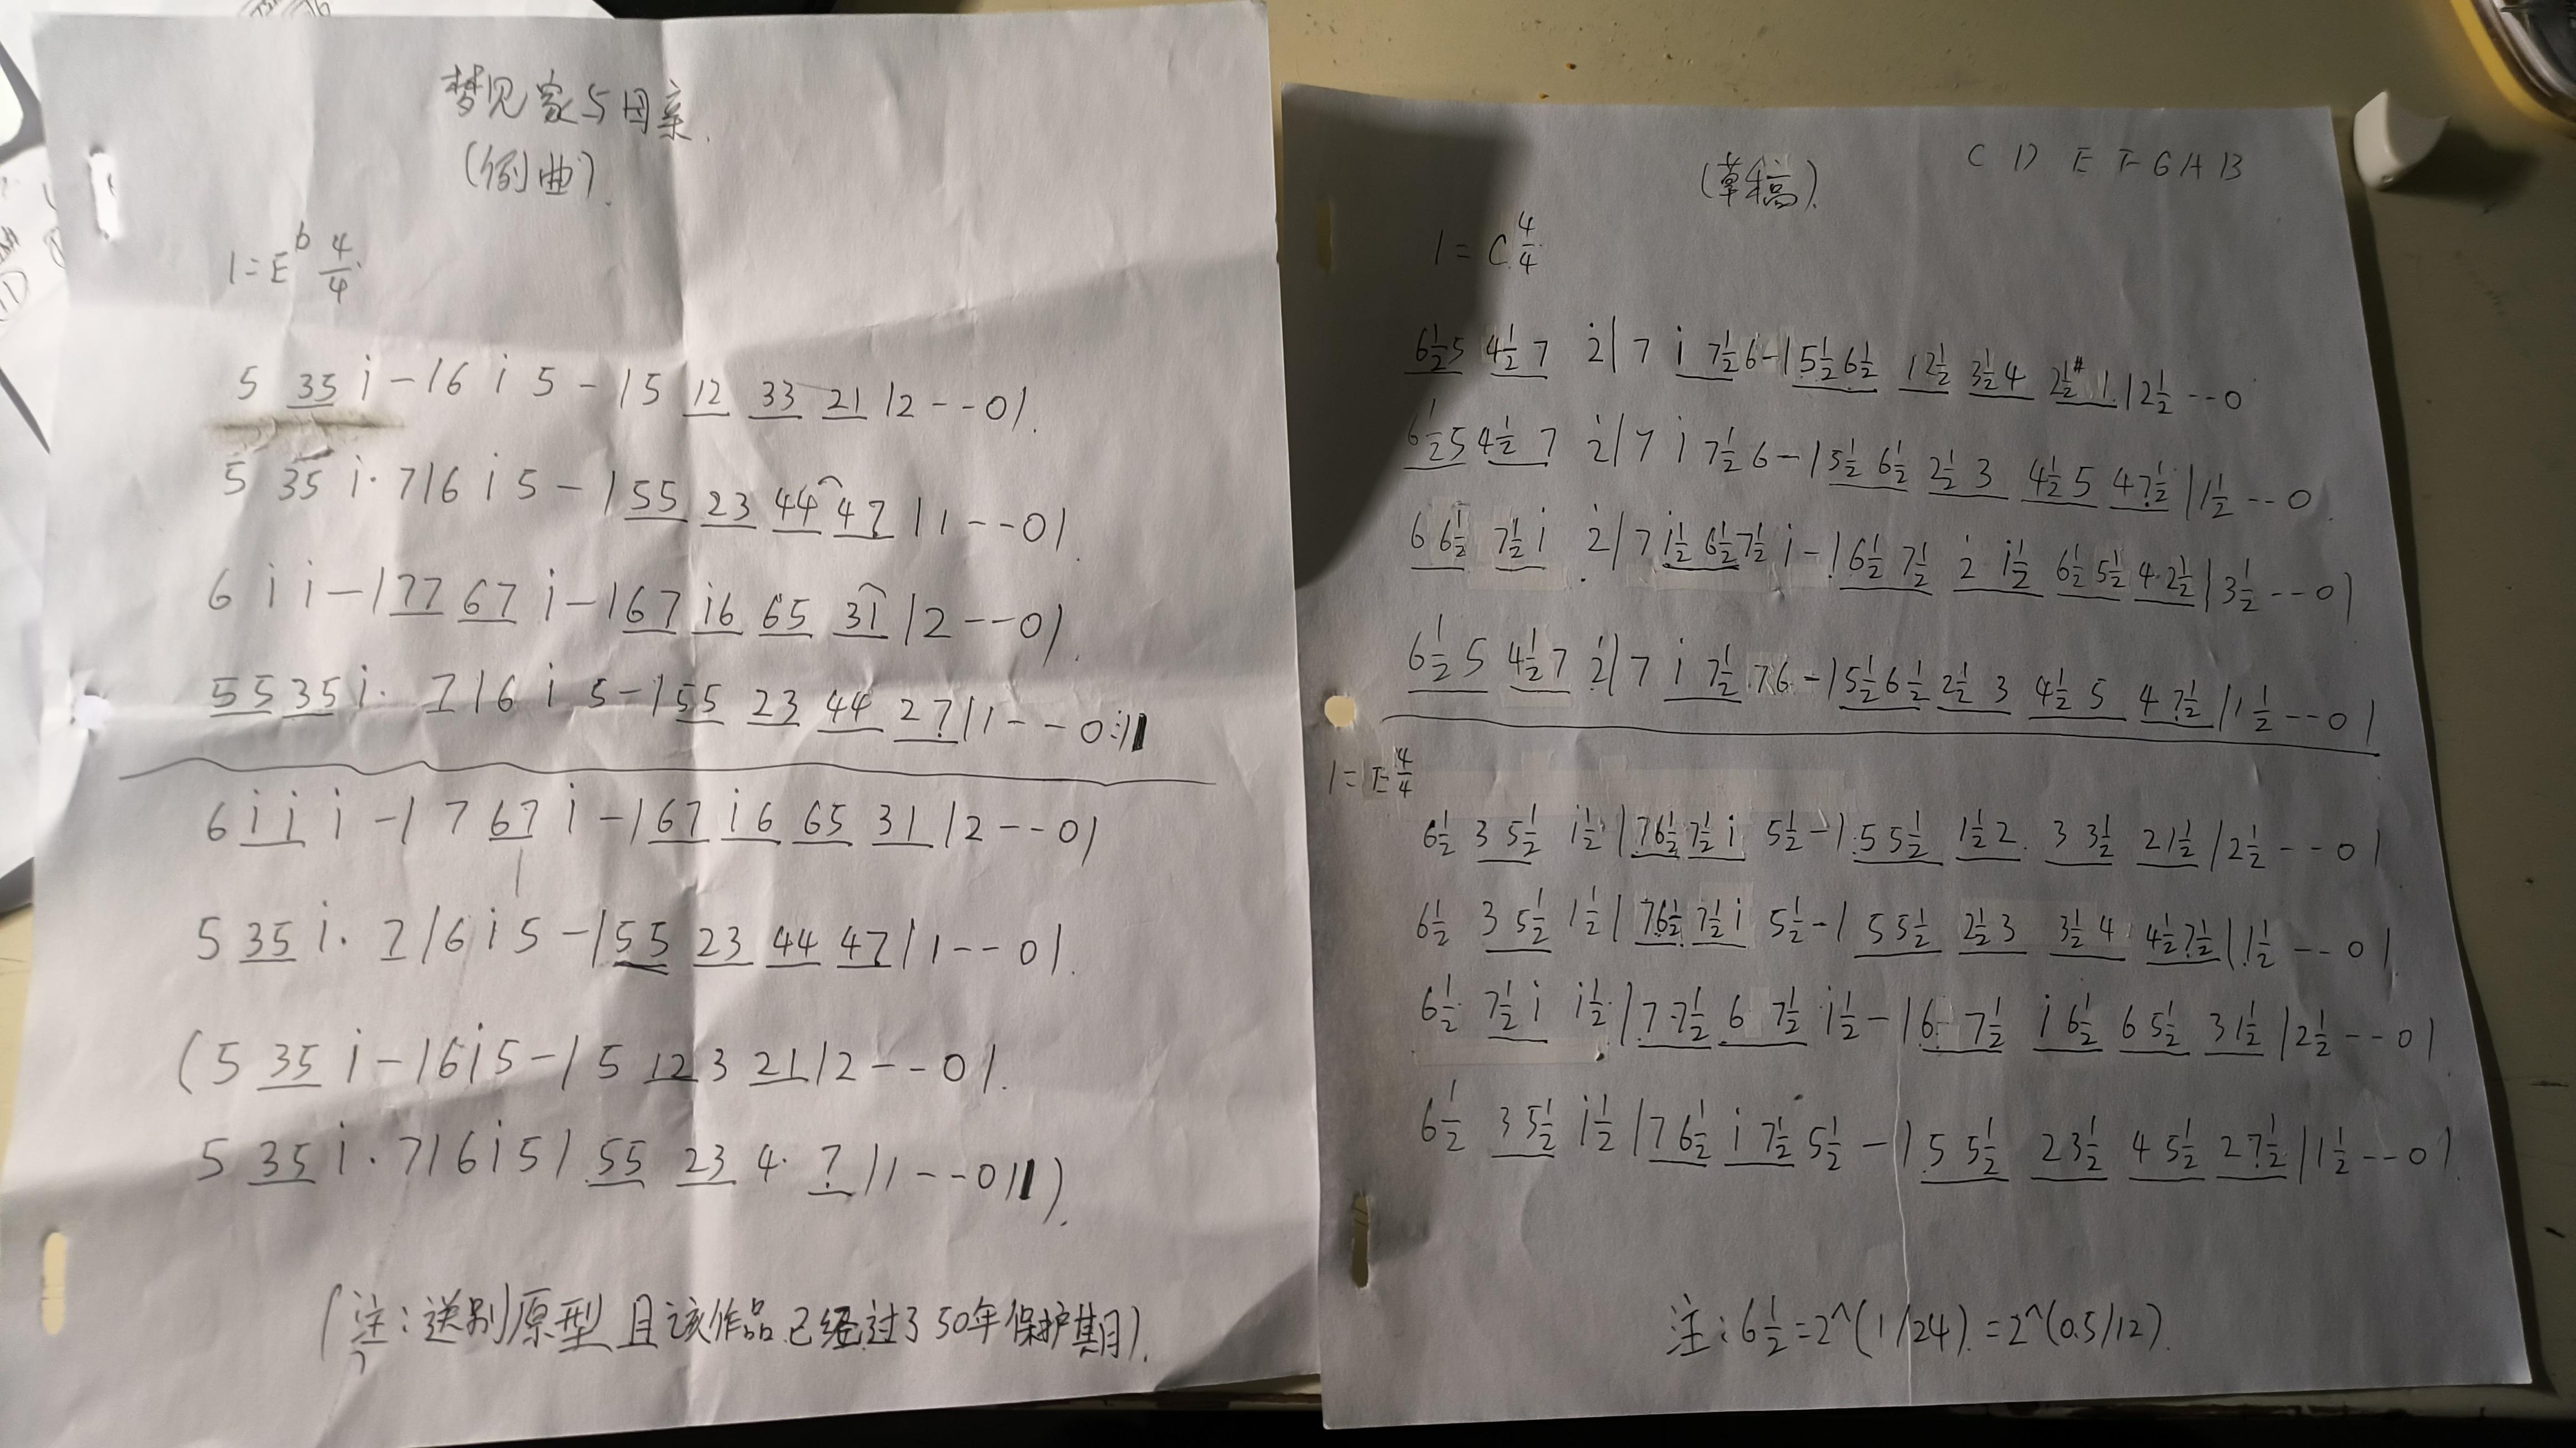 梦见家与母亲.
(例曲).
1=E♭ 4/4.
5 35 i - | 6 i 5 - | 5 12 33 21 | 2 - - 0 |.
5 35 i· 7 | 6 i 5 - | 55 23 44 47̣ | 1 - - 0 |.
6 i i - | 77 67 i - | 67 i6 65 31 | 2 - - 0 |.
55 35 i· 7 | 6 i 5 - | 55 23 44 27̣ | 1 - - 0 :||
6 i i i - | 7 67 i - | 67 i6 65 31 | 2 - - 0 |
5 35 i· 7 | 6 i 5 - | 55 23 44 47̣ | 1 - - 0 |.
(5 35 i - | 6 i 5 - | 5 12 3 21 | 2 - - 0 |.
5 35 i· 7 | 6 i 5 | 55 23 4· 7̣ | 1 - - 0 ||).
(注:送别原型 且该作品已经过了50年保护期).
(草稿).
C D E F G A B
1=C 4/4.
6½5 4½7 2̇ | 7 i 7½ 6 - | 5½6½ 12½ 3½4 2½# 1 | 2½ - - 0
6½5 4½7 2̇ | 7 i 7½ 6 - | 5½6½ 2½3 4½5 47̣½ | 1½ - - 0
66½ 7½i 2̇ | 7 i½ 6½7½ i - | 6½7½ 2̇ i½ 6½5½ 4·2½ | 3½ - - 0 |
6½5 4½7 2̇ | 7 i 7½ 76 - | 5½6½ 2½3 4½5 47̣½ | 1½ - - 0 |
1=E 4/4
6½ 35½ i½ | 76½ 7½i 5½ - | 55½ 1½2 33½ 21½ | 2½ - - 0 |
6½ 35½ 1½ | 76½ 7½i 5½ - | 55½ 2½3 3½4 4½7̣½ | 1½ - - 0 |
6½ 7½i i½ | 7·7½ 67½ i½ - | 67½ i6½ 65½ 31½ | 2½ - - 0 |
6½ 35½ i½ | 76½ i7½ 5½ - | 55½ 23½ 45½ 27̣½ | 1½ - - 0 |
注:6½=2^(1/24)=2^(0.5/12).